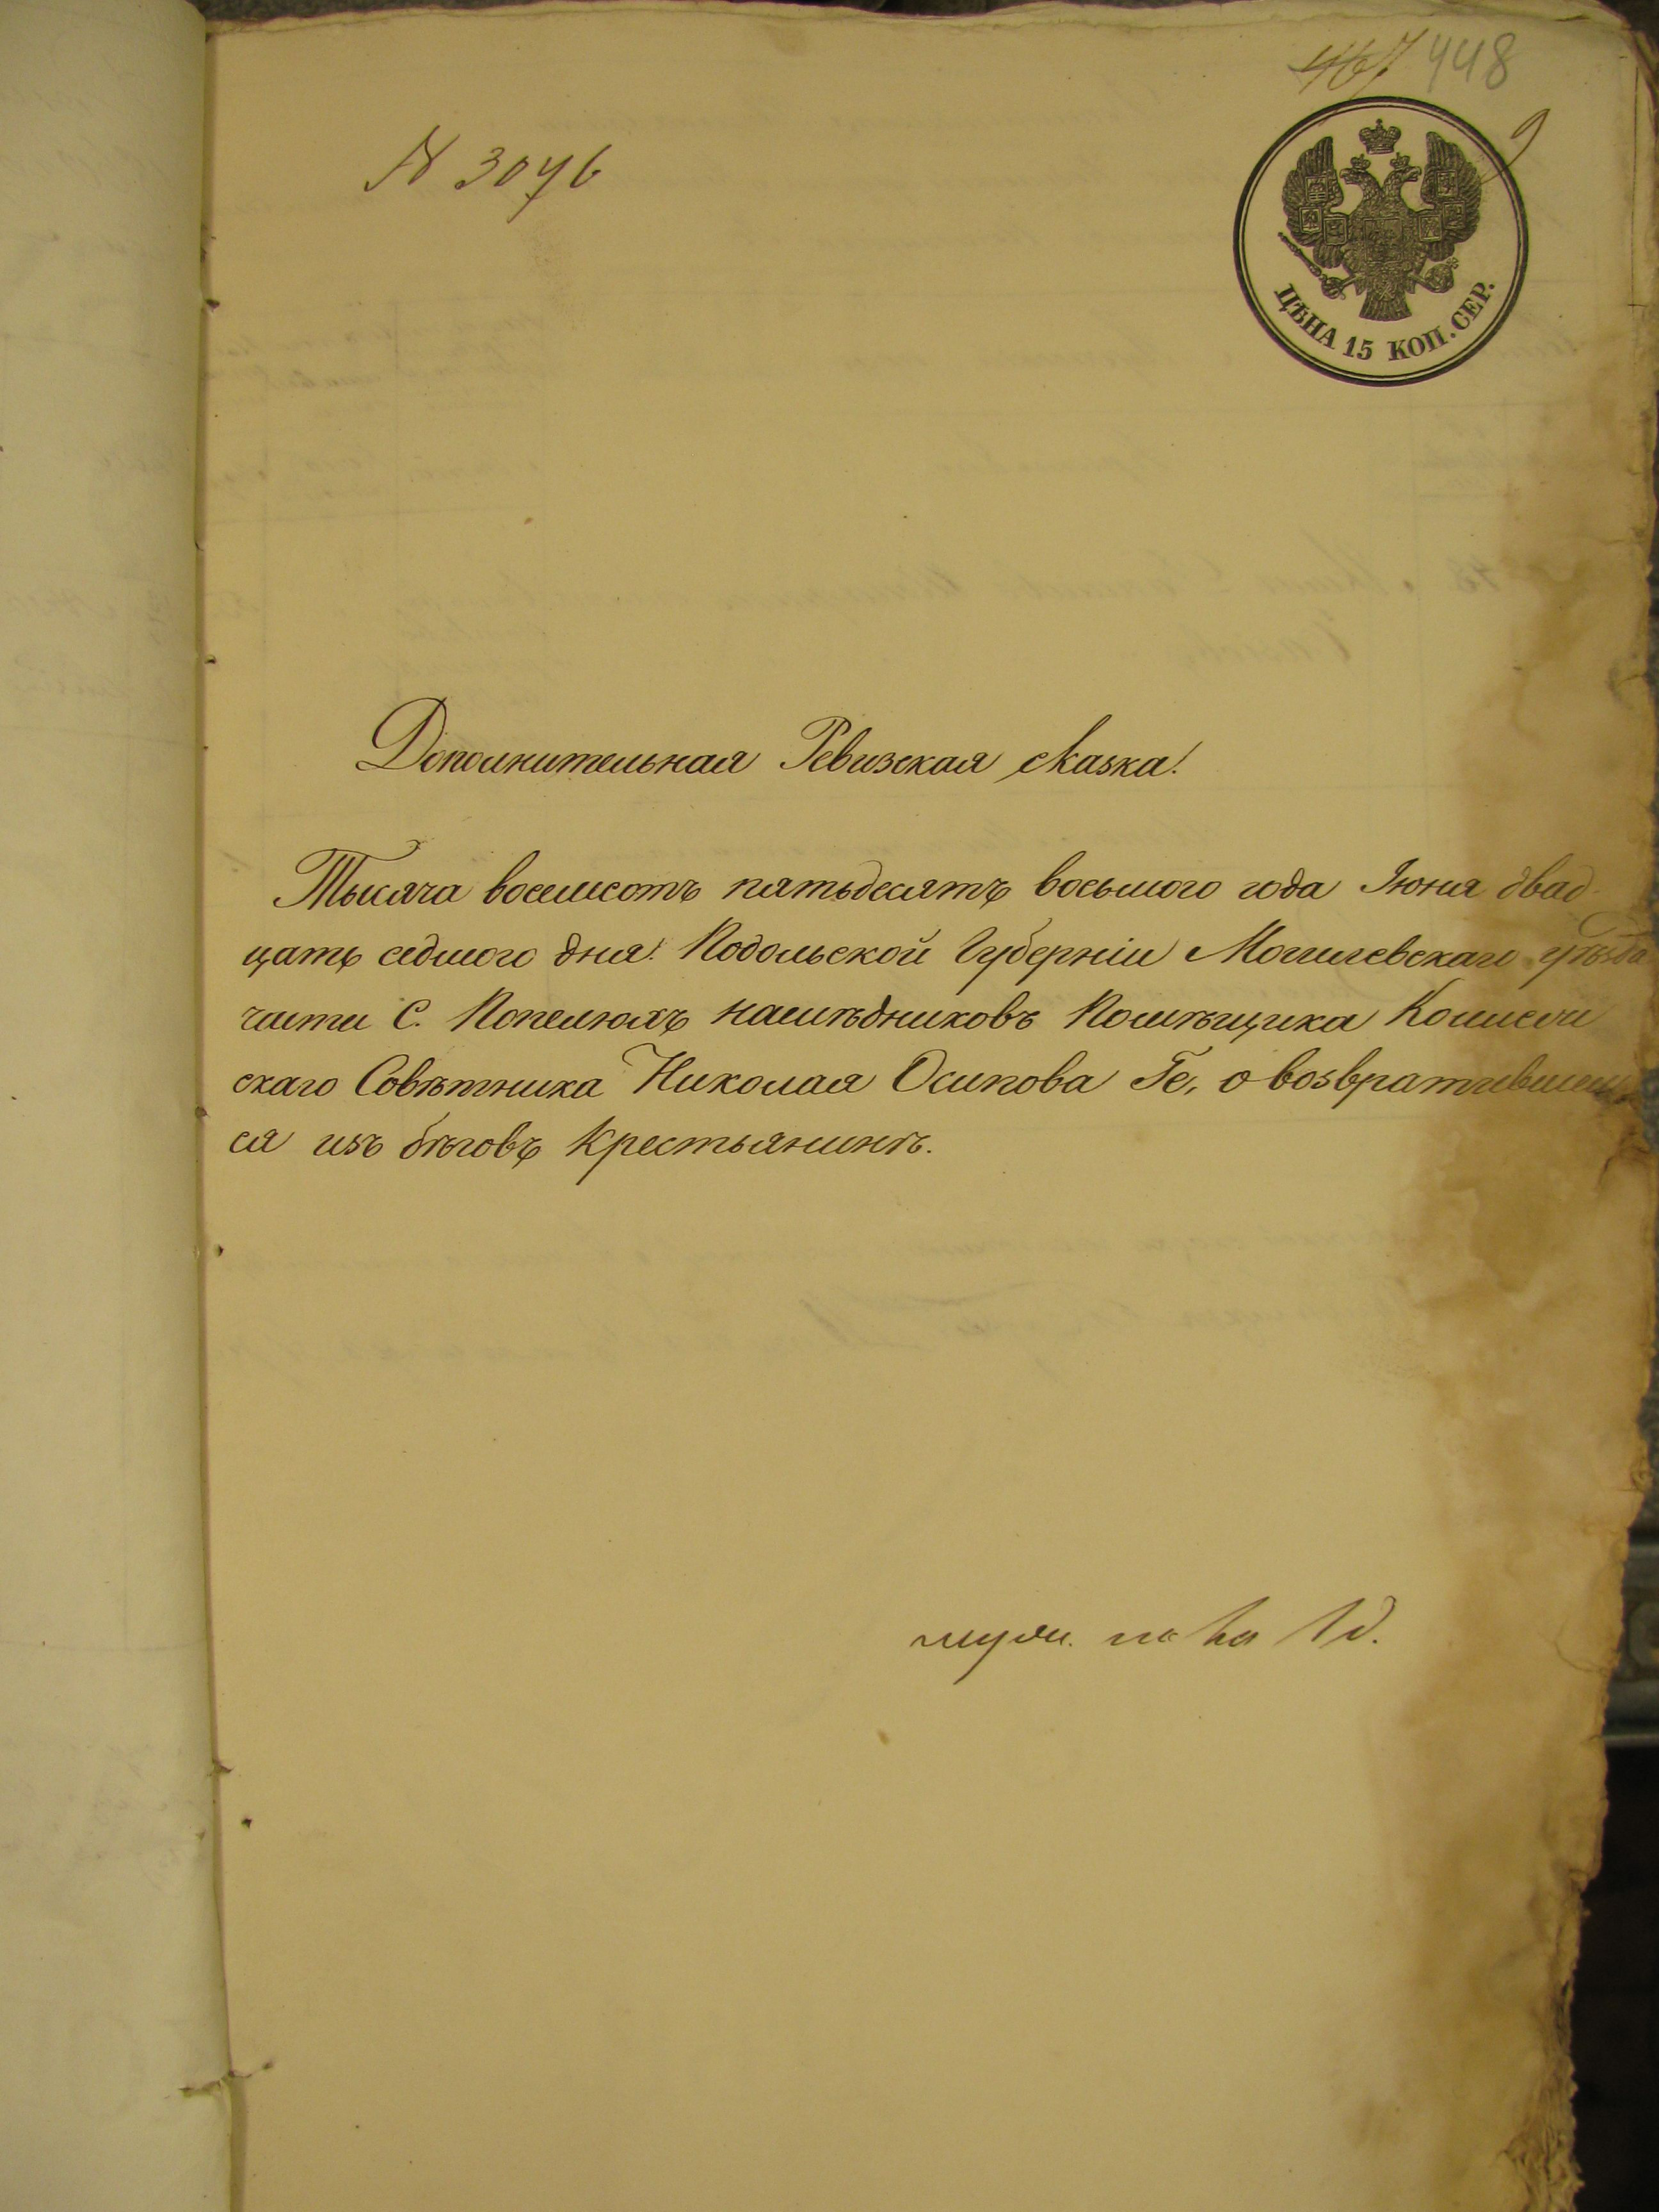 467 448
9
№ 3076
ЦѢНА 15 КОП. СЕР.
Дополнительная Ревизская сказка!
Тысяча восемсотъ пятьдесятъ восьмого года Іюня двад-
цать седмого дня! Подольской Губерніи Могилевскаго уѣзда
части С. Попелюхъ наслѣдниковъ Помѣщика Коллеж
скаго Совѣтника Николая Осипова Ге, о возвратившем
ся изъ бѣговъ крестьянинѣ.
муж. 1 д.